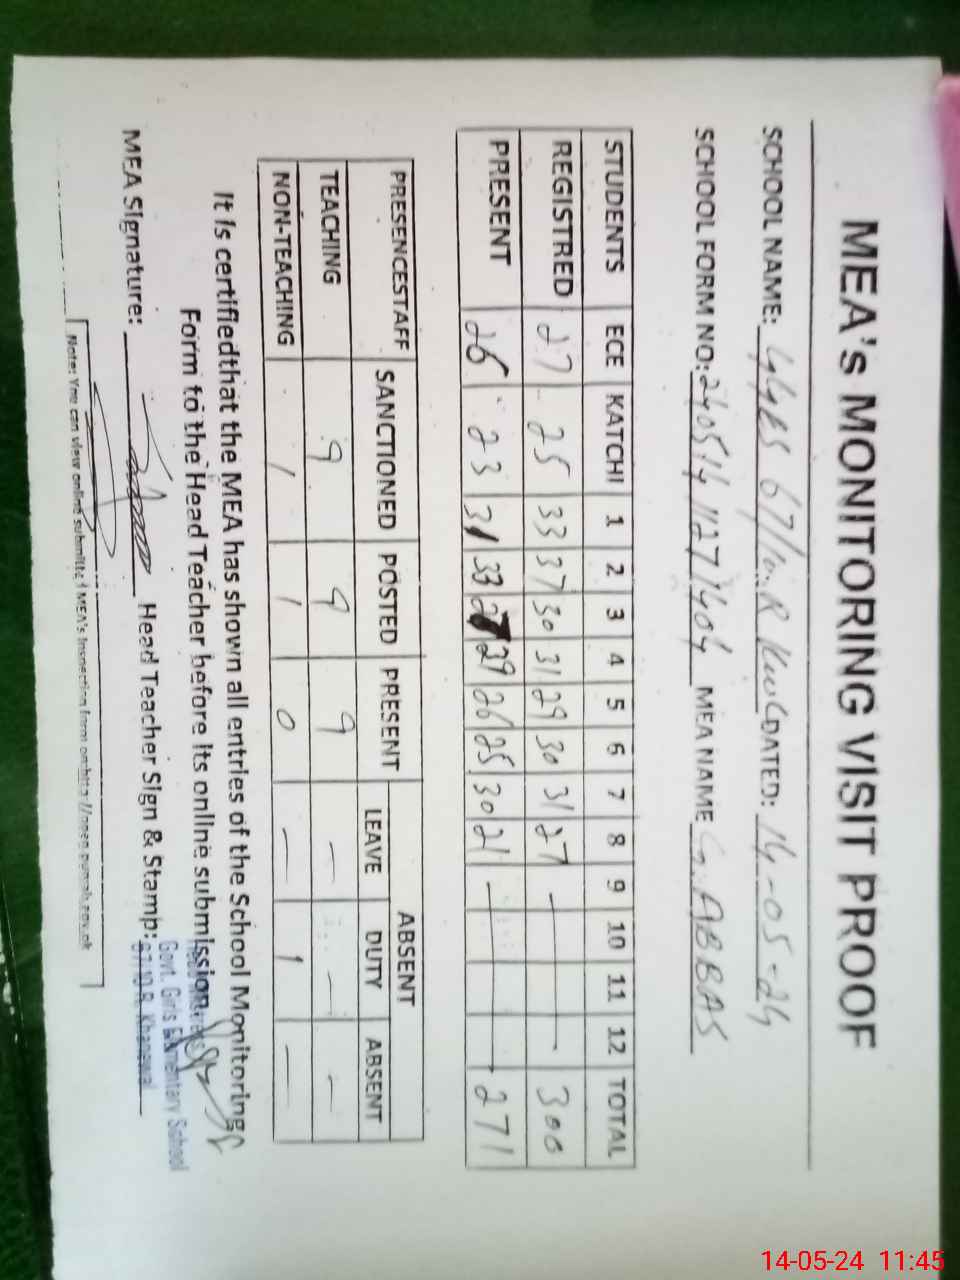 MEA's MONITORING VISIT PROOF
SCHOOL NAME: GGES 67/10.R KWL DATED: 14-05-24
SCHOOL FORM NO: 24051411277404 MEA NAME G. ABBAS
STUDENTS ECE KATCHI 1 2 3 4 5 6 7 8 9 10 11 12 TOTAL
REGISTRED 27 25 33 37 30 31 29 30 31 27 — 300
PRESENT 26 23 31 33 27 29 26 25 30 21 — 271
PRESENCESTAFF SANCTIONED POSTED PRESENT ABSENT
LEAVE DUTY ABSENT
TEACHING 9 9 9 — — —
NON-TEACHING 1 1 0 — 1 —
It is certifiedthat the MEA has shown all entries of the School Monitoring
Form to the Head Teacher before its online submission.
MEA Signature: Head Teacher Sign & Stamp:
Govt. Girls Elementary School
67.10 R. Khanewal
Note: You can view online submitted MEA's Inspection from on:http://open.punjab.gov.pk
14-05-24 11:45